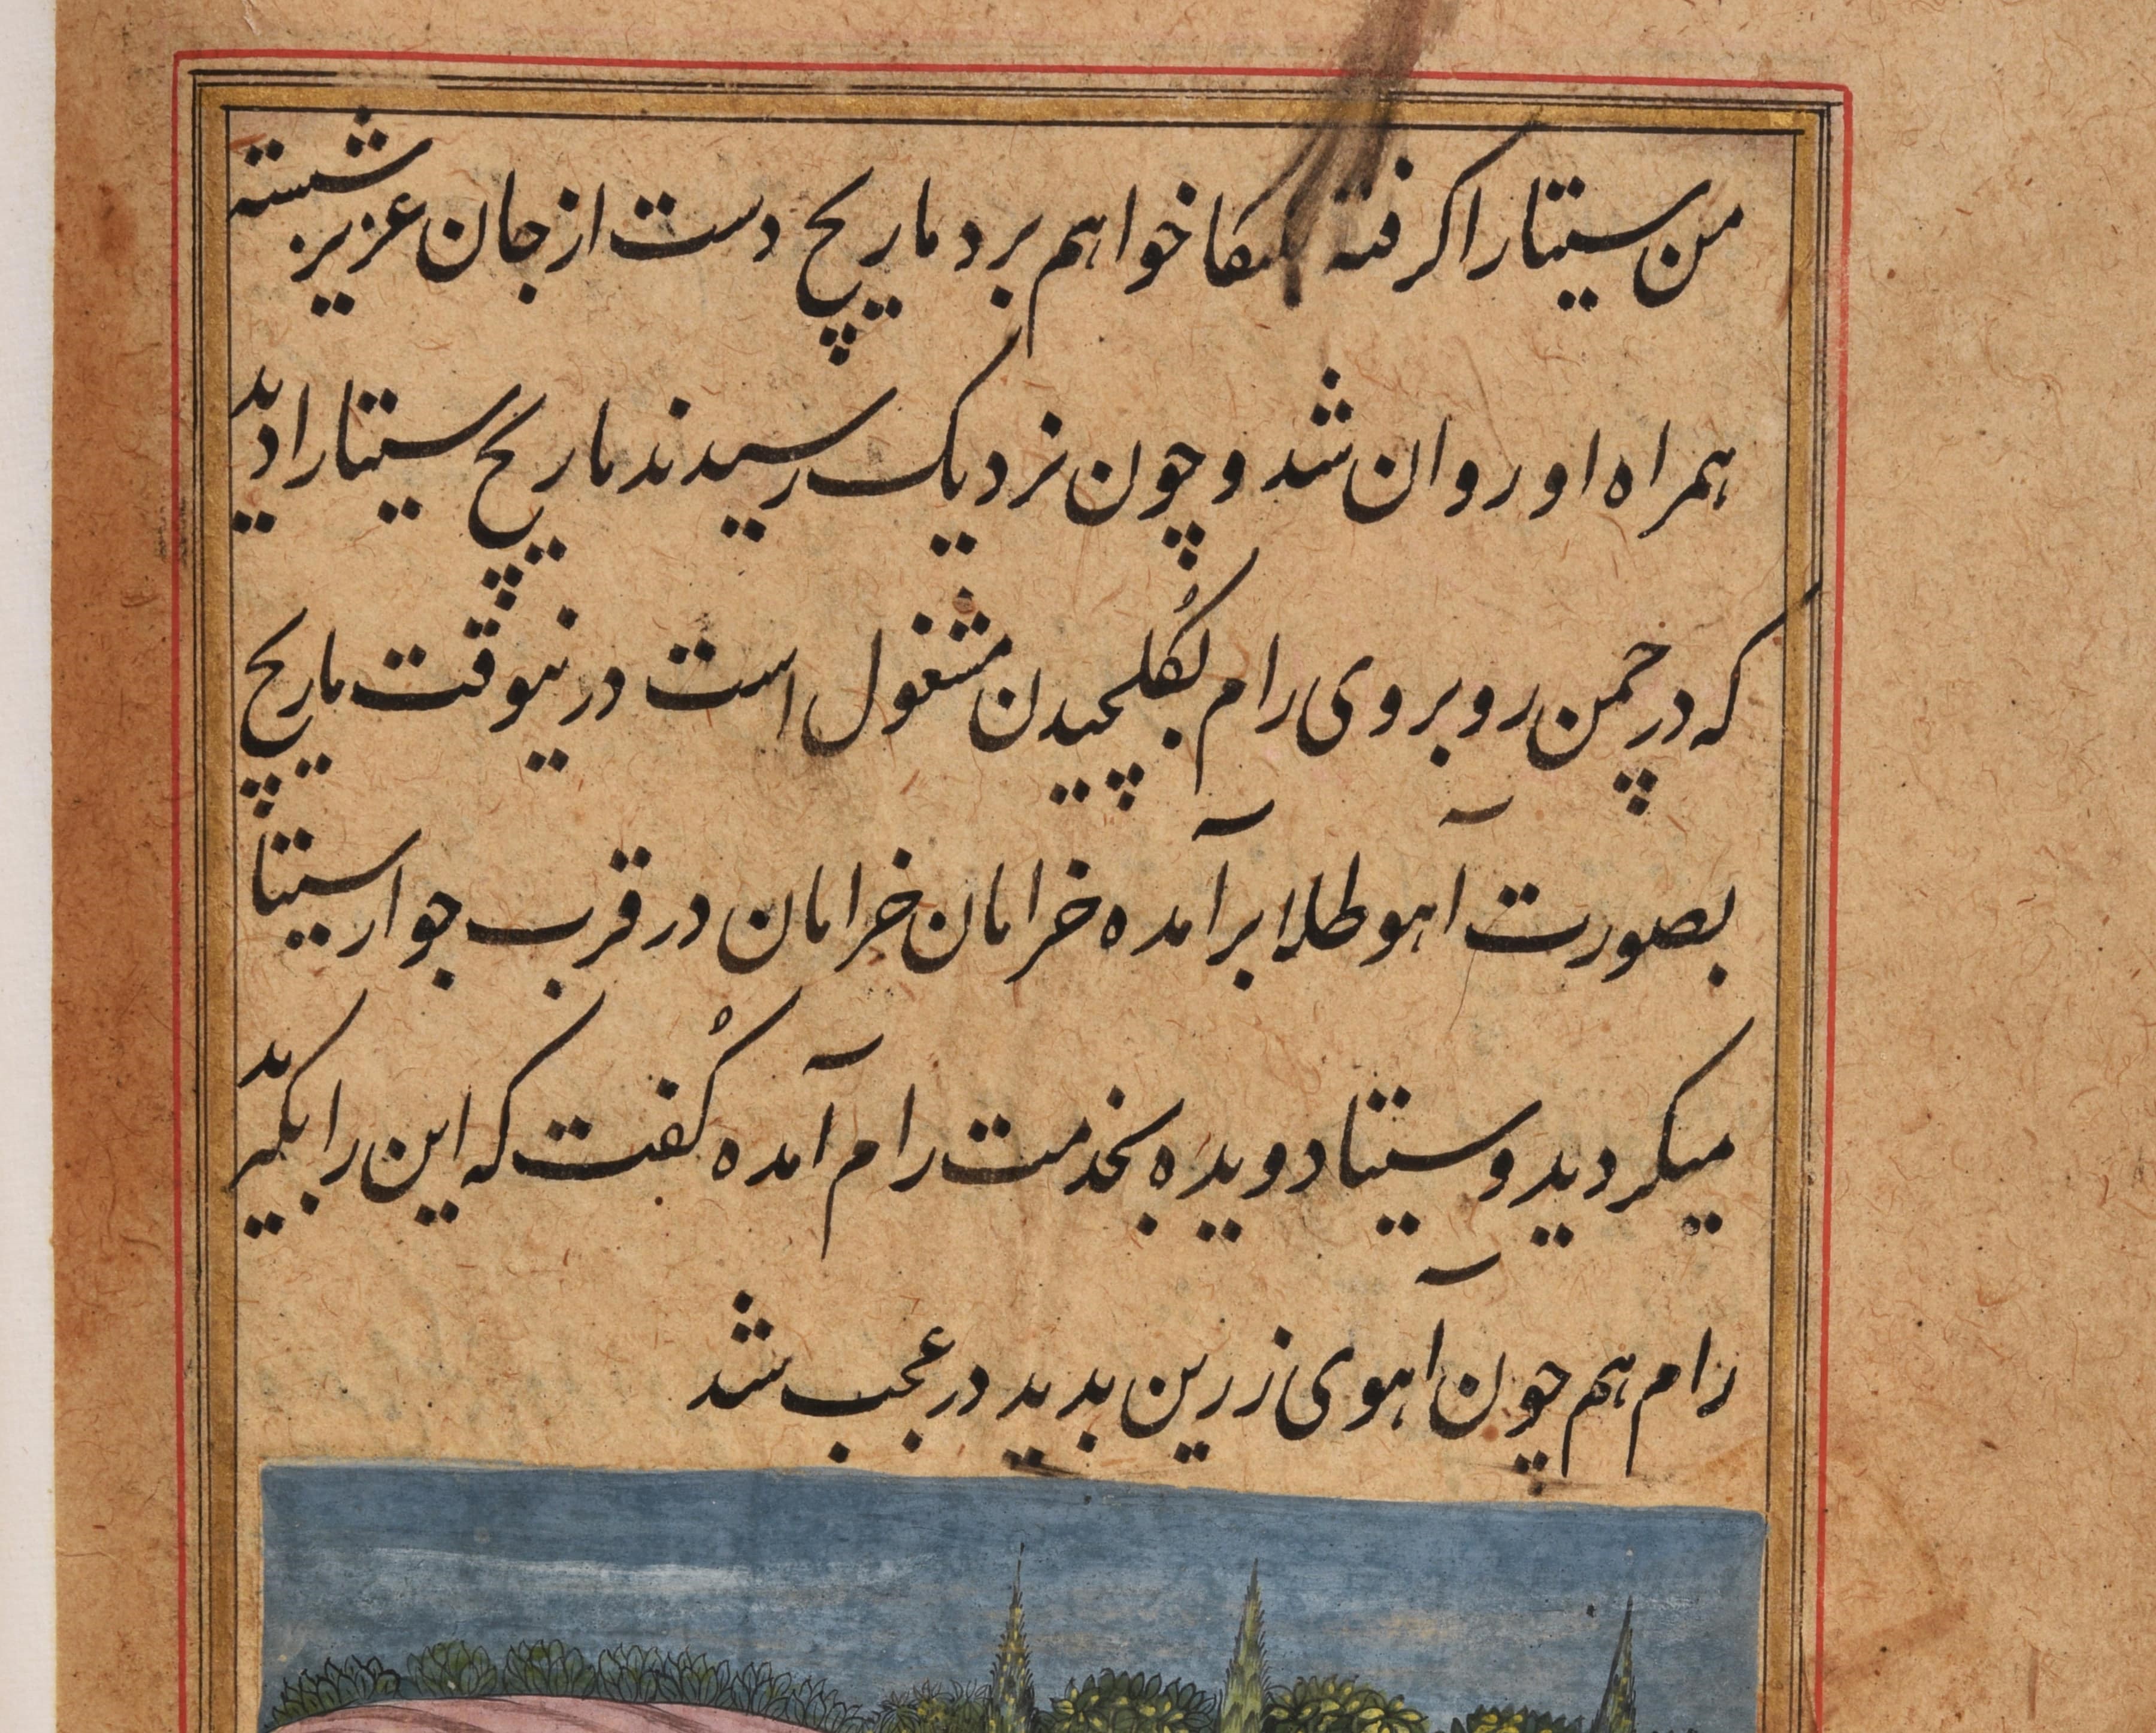 من سیتا را کرفته بلنکا خواهم برد ماریچ دست از جان عزیز شسته
همراه او روان شد و چون نزدیک رسیدند ماریچ سیتا را دید
که در چمن روبروی رام بکُلچیدن مشغول است درینوقت ماریچ
بصورت آهو طلا برآمده خرامان خرامان در قرب جوار سیتا
میکردید و سیتا دویده بخدمت رام آمده کُفت که این را بکیرید
رام هم چون آهوی زرین بدید در عجب شد